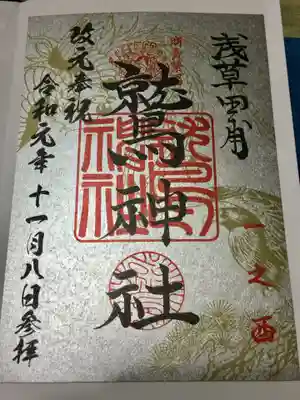 浅草田甫
一之酉
鷲神社
改元奉祝
令和元年十一月八日参拝